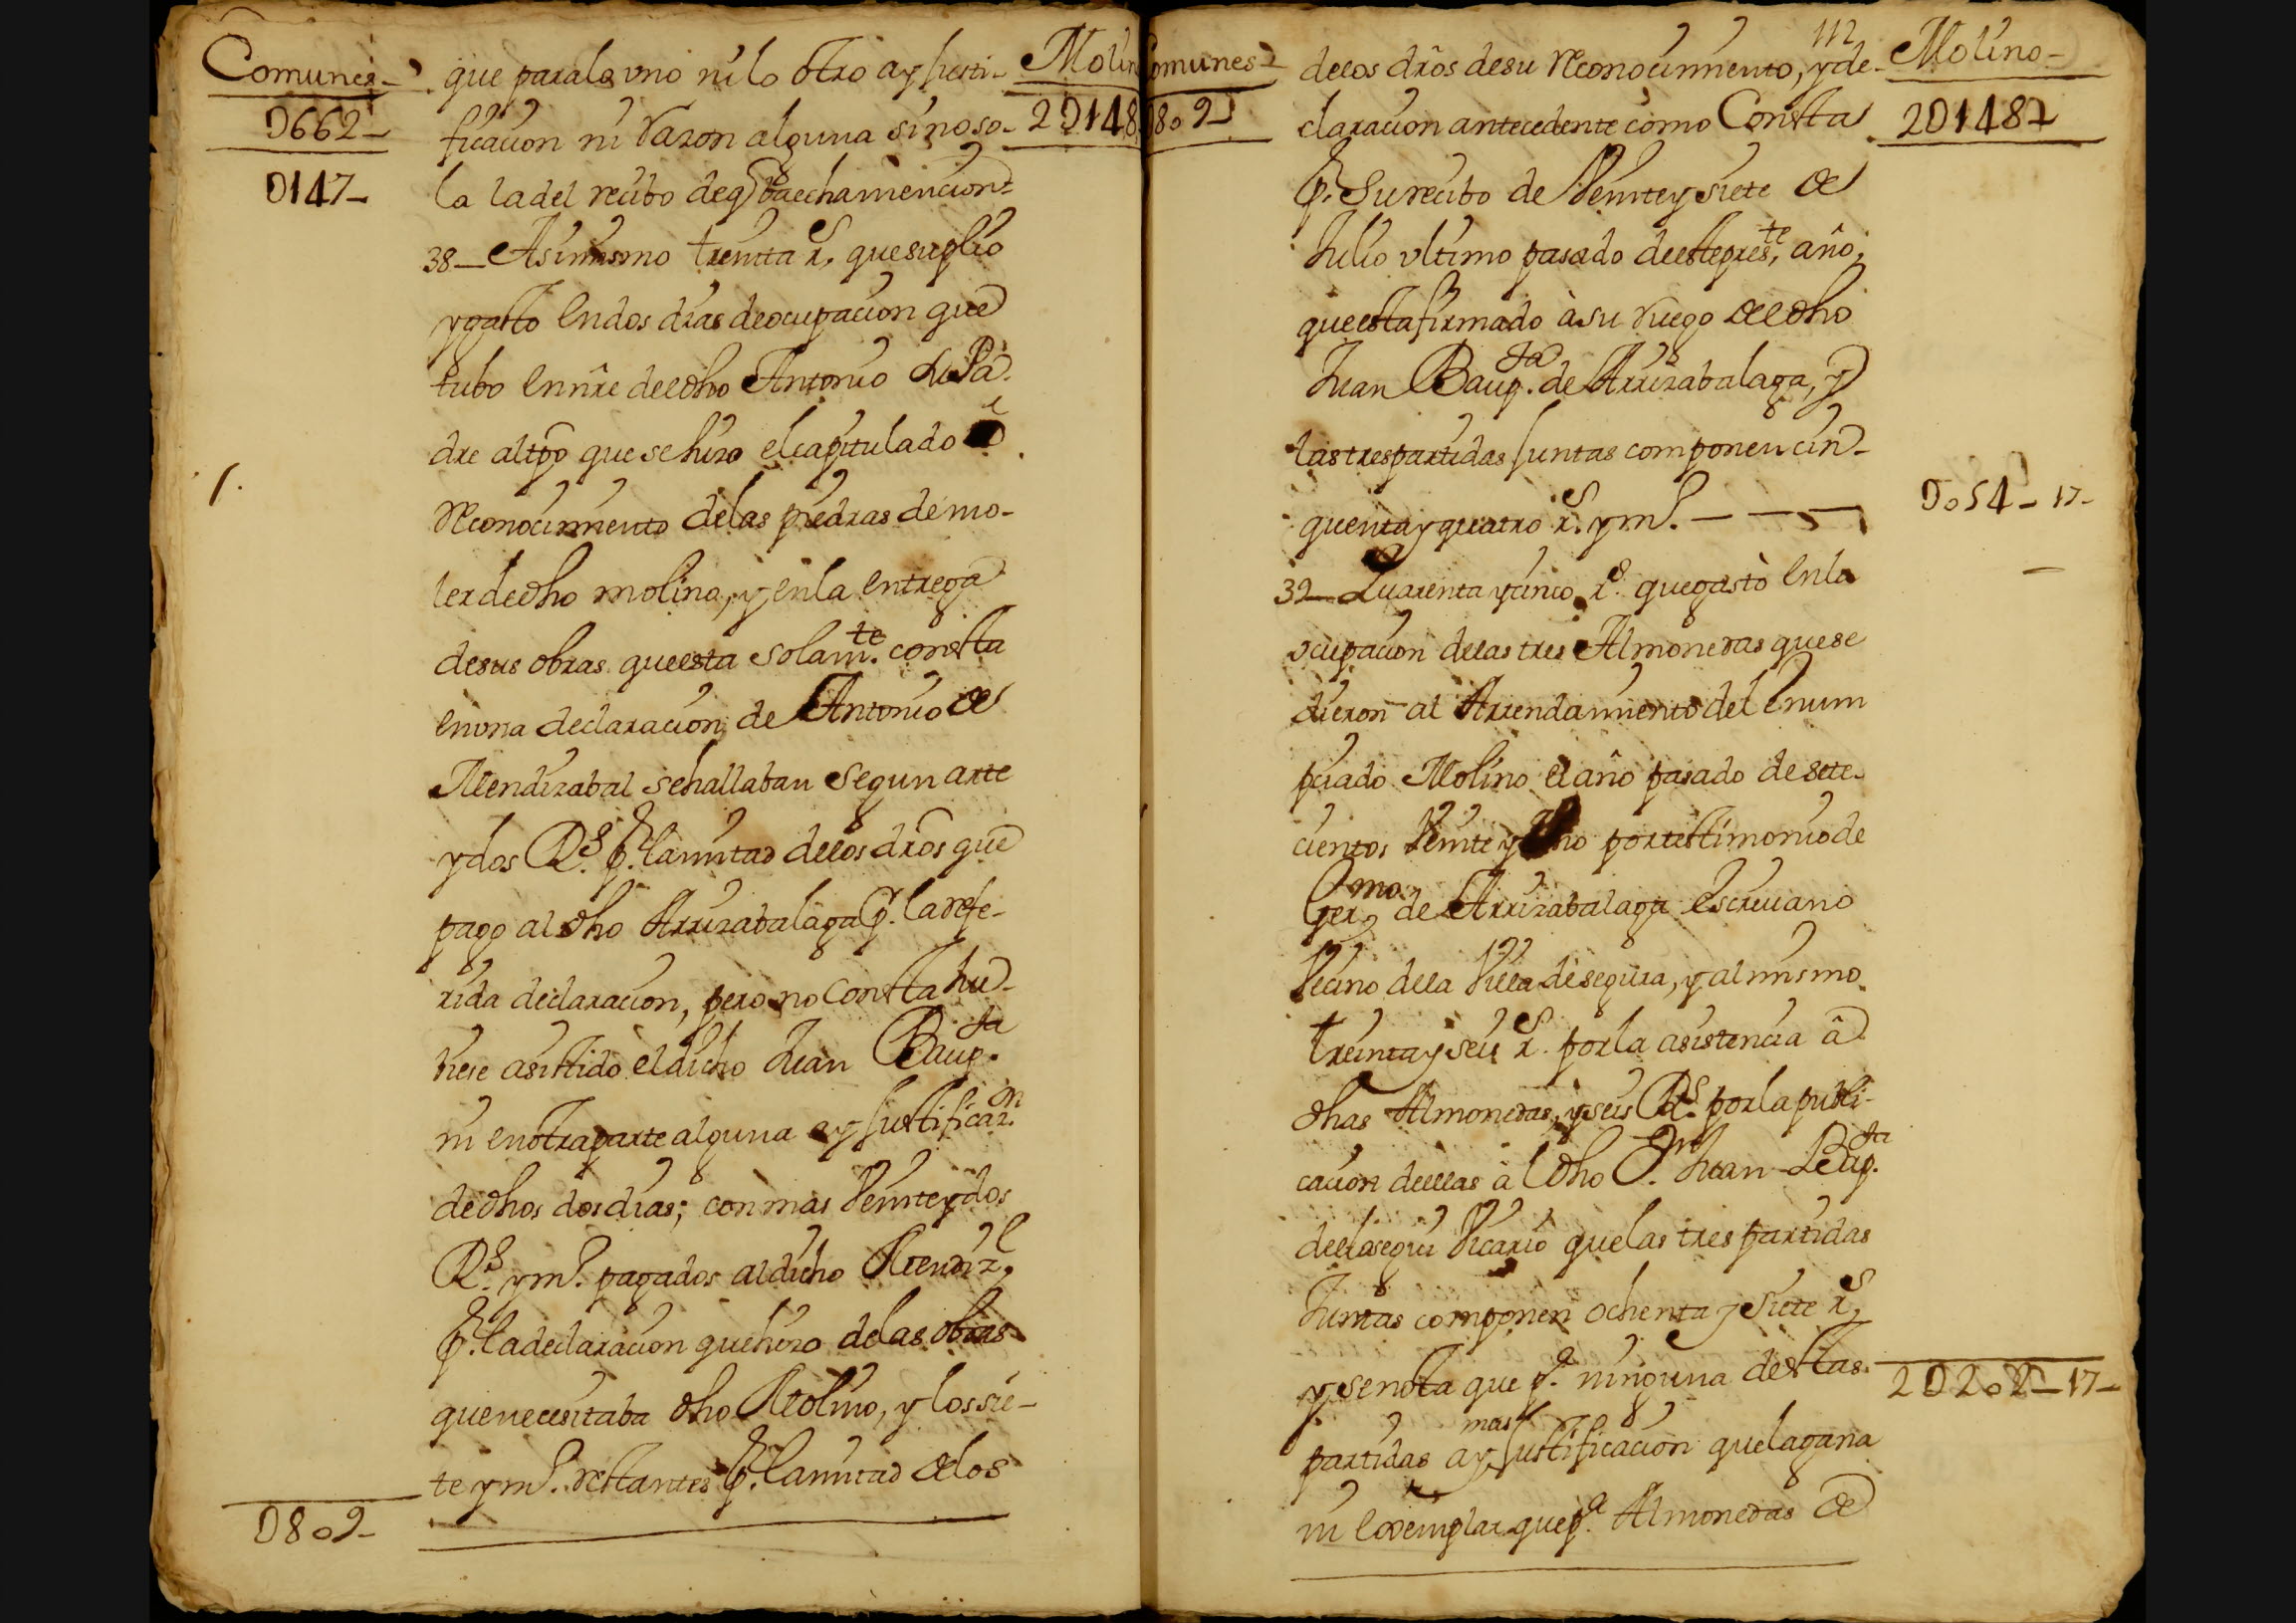 Comunes
D662
D147
que para lo vno ni lo otro ay Justi-
ficacion ni Razon alguna sino so-
la la del recibo de q ba echa mencion
38 Asimismo treinta rs. que suplio
y gasto en dos dias de ocupacion que
tubo en nre de el dho Antonio de Pa-
dre al tpo que se hizo el capitulado
Reconocimiento de las piedras de mo-
ler de dho molino, y en la entrega
de sus obras que esta solamte. consta
en vna declaracion de Antonio de
Mendizabal se hallaban segun arte
y dos Rs. p. la mitad de los dros que
pago al dho Arrizabalaga p. la refe-
rida declaracion, pero no consta hu-
viese asistido el dicho Juan Baupta.
ni en otra parte alguna ay Justificazn.
de dhos dos dias; con mas Veinte y dos
Rs. y mº. pagados al dicho Mendizl,
p. la declaracion que hizo de las obras
que necesitaba dho Molino, y los sie-
te y mº. restantes p. la mitad de los
D809
Molin
2D148
Comunes
D809
112
de los dros de su Reconocimiento, y de-
claracion antecedente como Consta
p. su recibo de Veinte y siete de
Julio vltimo pasado de este preste, año,
que esta firmado à su Ruego de el dho
Juan Baupta. de Arrizabalaga, y
las tres partidas Juntas componen cin-
quenta y quatro rs. y mº.
39 Quarenta y cinco rs. que gastò en la
ocupacion de las tres Almonedas que se
dieron al Arrendamiento del enum
puado Molino el año pasado de sete-
cientos Veinte y no por testimonio de
Germo. de Arrizabalaga escrivano
Vecino de la Villa de segura, y al mismo
treinta y seis rs. por la asistencia â
dhas Almonedas, y seis Rs. por la publi-
cacion de ellas a el dho Dn. Juan Bapta.
de elasegui Vicario que las tres partidas
Juntas componen ochenta y siete rs,
y se nota que pa. ninguna de estas
partidas ay mas Justificacion que la gana
ni exemplar que pa. Almonedas de
Molino
2D148
D054-17-
2D202-17-